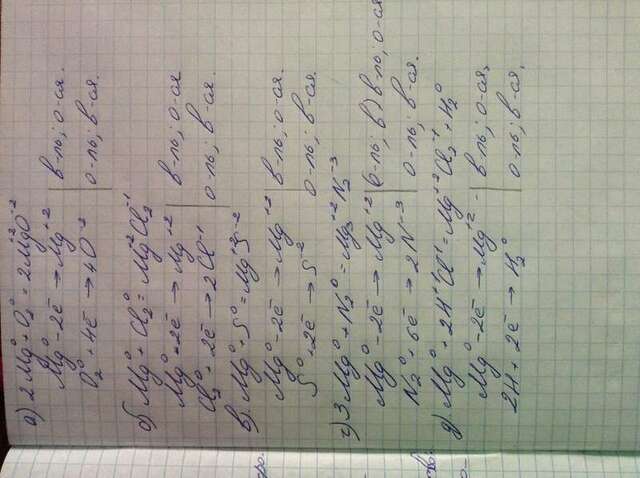 а) 2Mg⁰ + O₂⁰ = 2Mg⁺²O⁻²
Mg⁰ - 2ē → Mg⁺² | в-ль; о-ся.
O₂⁰ + 4ē → 2O⁻² | о-ль; в-ся.
б) Mg⁰ + Cl₂⁰ = Mg⁺²Cl₂⁻¹
Mg⁰ - 2ē → Mg⁺² | в-ль; о-ся
Cl₂⁰ + 2ē → 2Cl⁻¹ | о-ль; в-ся.
в). Mg⁰ + S⁰ = Mg⁺²S⁻²
Mg⁰ - 2ē → Mg⁺² | в-ль; о-ся.
S⁰ + 2ē → S⁻² | о-ль; в-ся.
г) 3Mg⁰ + N₂⁰ = Mg₃⁺²N₂⁻³
Mg⁰ - 2ē → Mg⁺² | в-ль; о-ся
N₂⁰ + 6ē → 2N⁻³ | о-ль; в-ся.
д). Mg⁰ + 2H⁺¹Cl⁻¹ = Mg⁺²Cl₂⁻¹ + H₂⁰
Mg⁰ - 2ē → Mg⁺² | в-ль; о-ся,
2H + 2ē → H₂⁰ | о-ль; в-ся,